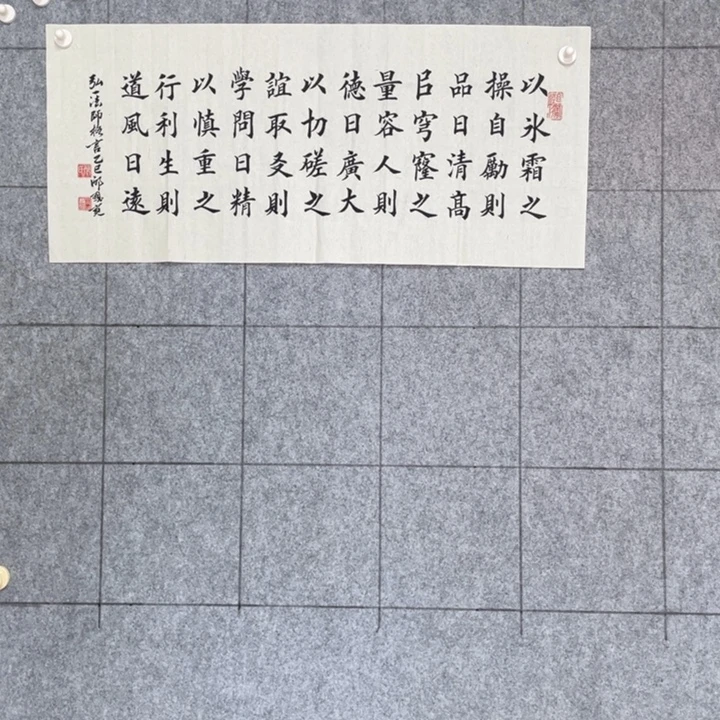 以氷霜之
操自勵則
品日清高
㠯穹窿之
量容人則
徳日廣大
以切磋之
誼取友則
學問日精
以慎重之
行利生則
道風日遠
弘一法師格言乙巳邱